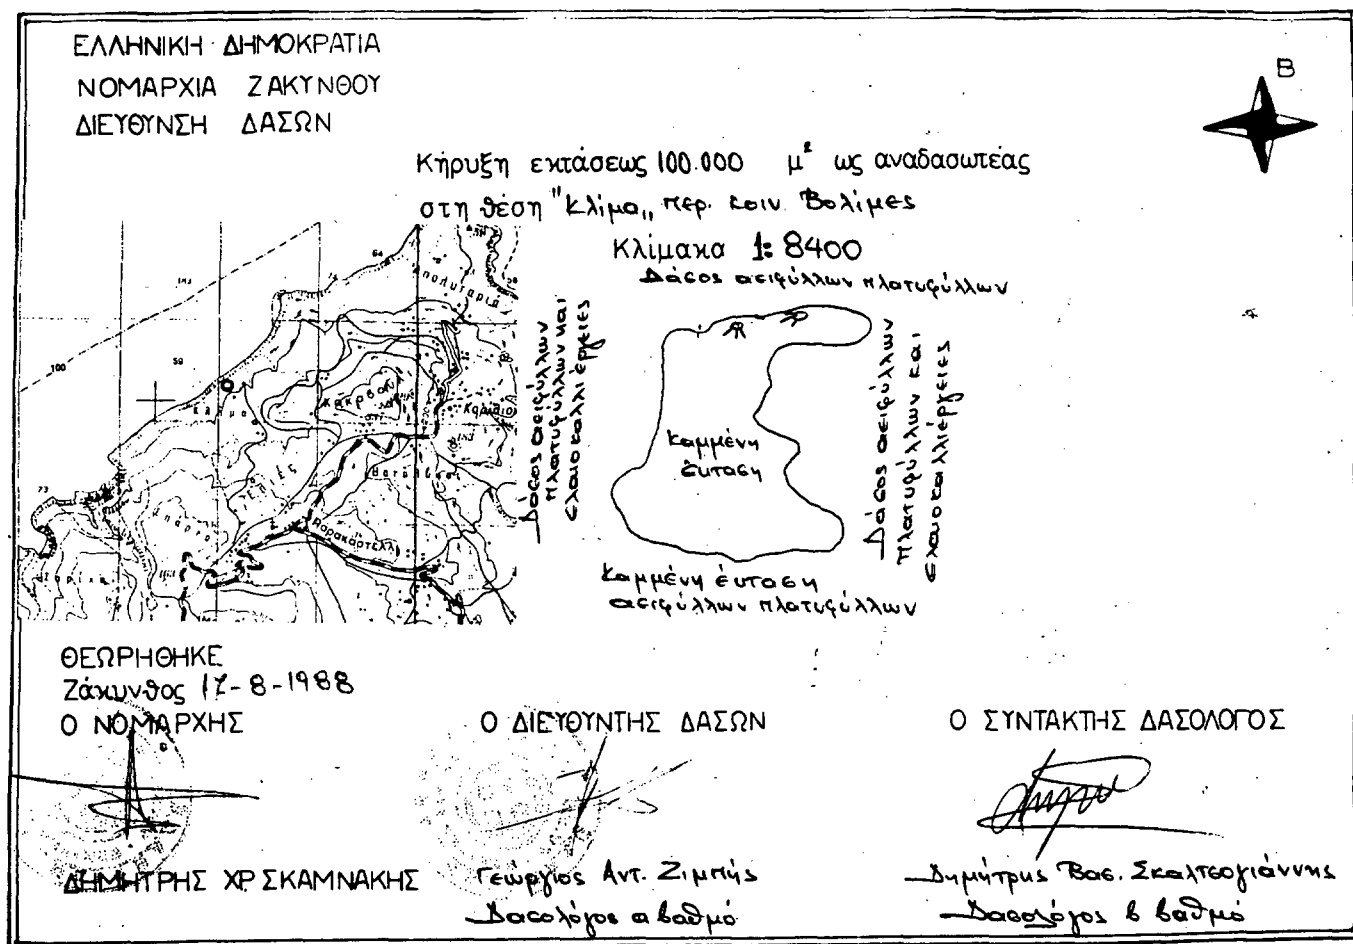 ΕΛΛΗΝΙΚΗ ΔΗΜΟΚΡΑΤΙΑ
ΝΟΜΑΡΧΙΑ ΖΑΚΥΝΘΟΥ
ΔΙΕΥΘΥΝΣΗ ΔΑΣΩΝ
Β
Κήρυξη εκτάσεως 100.000 μ² ως αναδασωτέας
στη θέση "Κλίμα„ περ. κοιν. Βολίμες
Κλίμακα 1:8400
Δάσος αειφύλλων πλατυφύλλων
Δάσος αειφύλλων
πλατυφύλλων και
ελαιοκαλλιέργειες
Καμμένη
έκταση
Δάσος αειφύλλων
πλατυφύλλων και
ελαιοκαλλιέργειες
Καμμένη έκταση
αειφύλλων πλατυφύλλων
64
74
Απολυταριά
59
100
Κλήμα
Κακρβούν
73
ΘΕΩΡΗΘΗΚΕ
Ζάκυνθος 17-8-1988
Ο ΝΟΜΑΡΧΗΣ
Ο ΔΙΕΥΘΥΝΤΗΣ ΔΑΣΩΝ
Ο ΣΥΝΤΑΚΤΗΣ ΔΑΣΟΛΟΓΟΣ
ΔΗΜΗΤΡΗΣ ΧΡ ΣΚΑΜΝΑΚΗΣ
Γεώργιος Αντ. Ζιμπής
Δασολόγος α βαθμό
Δημήτρης Βασ. Σκαλτσογιάννης
Δασολόγος β βαθμό